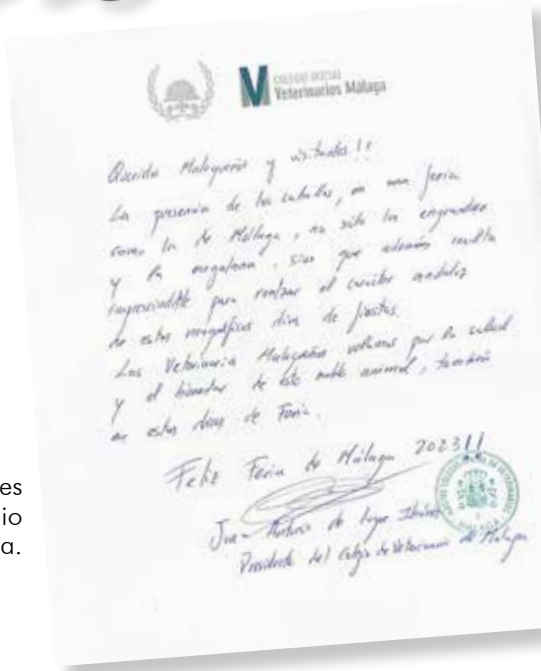 COLEGIO OFICIAL
Veterinarios Málaga
Queridos Malagueños y visitantes!!
La presencia de los caballos, en una feria
como la de Málaga, no sólo la engrandece
y la engalana, sino que además resulta
imprescindible para realzar el carácter andaluz
de estos magníficos días de fiestas.
Los Veterinarios Malagueños velamos por la salud
y el bienestar de este noble animal, también
en estos días de Feria.
Feliz Feria de Málaga 2023!!
Juan Antonio de Luque Ibáñez
Presidente del Colegio de Veterinarios de Málaga
es
io
a.